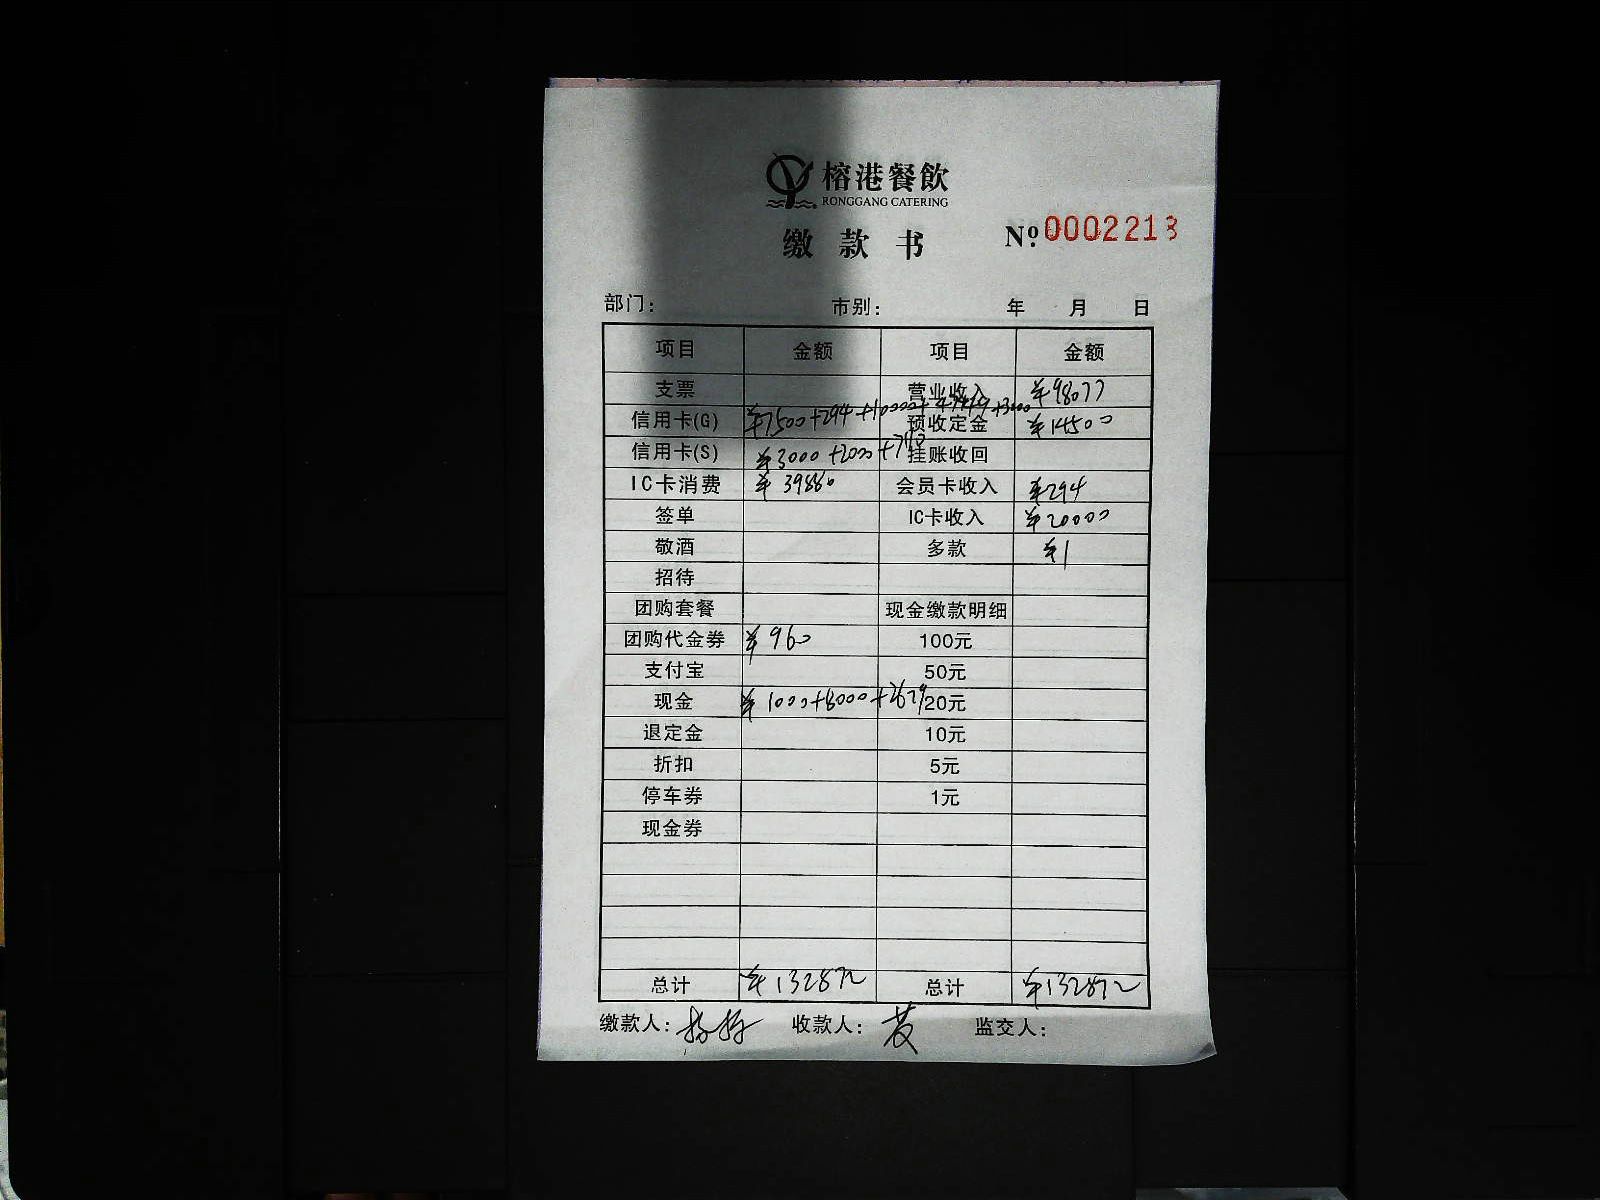 榕港餐飲
RONGGANG CATERING
缴款书 №0002213
部门: 市别: 年 月 日
项目 金额 项目 金额
支票 营业收入 ¥98077
信用卡(G) ¥7500+294+10000+ +3000 预收定金 ¥14500
信用卡(S) ¥3000+2000+ 挂账收回
IC卡消费 ¥39880 会员卡收入 ¥294
签单 IC卡收入 ¥20000
敬酒 多款 ¥1
招待
团购套餐 现金缴款明细
团购代金券 ¥960 100元
支付宝 50元
现金 ¥1000+8000+2629 20元
退定金 10元
折扣 5元
停车券 1元
现金券
总计 ¥132872 总计 ¥132872
缴款人: 收款人: 黄 监交人: